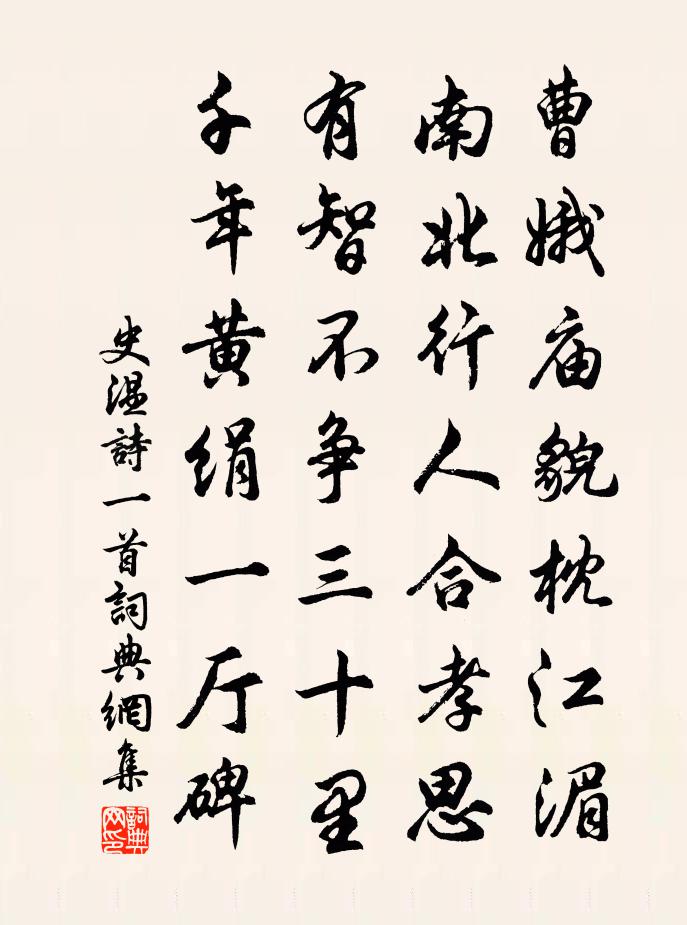 曹娥庙貌枕江湄
南北行人合孝思
有智不争三十里
千年黄绢一厅碑
史温詩一首詞典網集
詞典網印